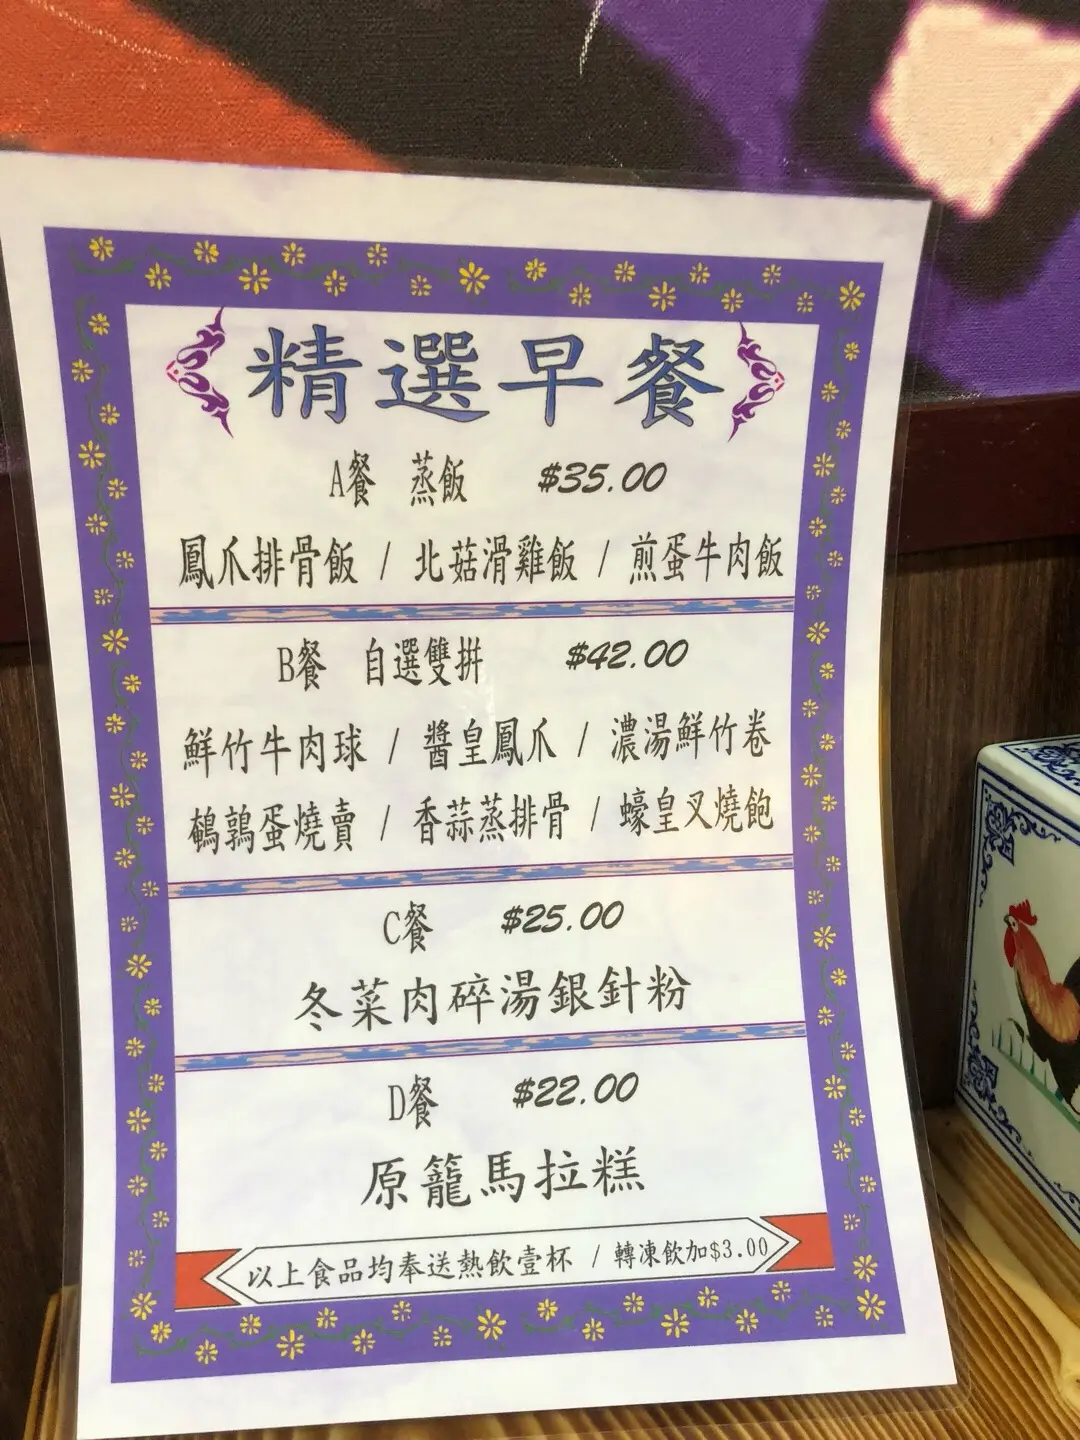 精選早餐
A餐 蒸飯 $35.00
鳳爪排骨飯 / 北菇滑雞飯 / 煎蛋牛肉飯
B餐 自選雙拼 $42.00
鮮竹牛肉球 / 醬皇鳳爪 / 濃湯鮮竹卷
鵪鶉蛋燒賣 / 香蒜蒸排骨 / 蠔皇叉燒飽
C餐 $25.00
冬菜肉碎湯銀針粉
D餐 $22.00
原籠馬拉糕
以上食品均奉送熱飲壹杯 / 轉凍飲加$3.00